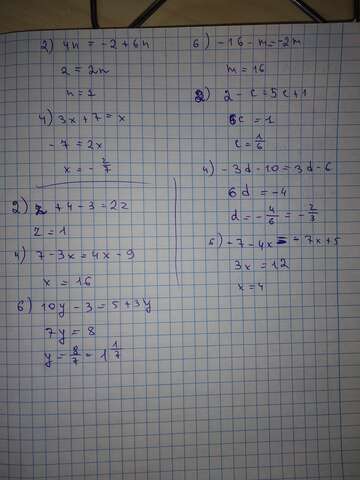 2) 4n = -2 + 6n
2 = 2n
n = 1
4) 3x + 7 = x
- 7 = 2x
x = - 2/7
2) z + 4 - 3 = 2z
z = 1
4) 7 - 3x = 4x - 9
x = 16
6) 10y - 3 = 5 + 3y
7y = 8
y = 8/7 = 1 1/7
6) - 16 - m = -2m
m = 16
2) 2 - c = 5c + 1
6c = 1
c = 1/6
4) - 3d - 10 = 3d - 6
6d = -4
d = - 4/6 = - 2/3
6) - 7 - 4x = - 7x + 5
3x = 12
x = 4